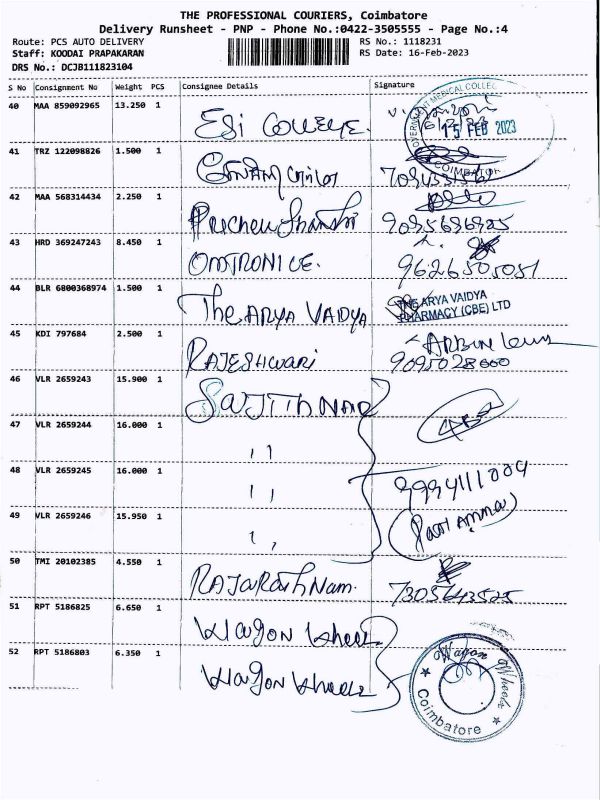 THE PROFESSIONAL COURIERS, Coimbatore
Delivery Runsheet - PNP - Phone No.:0422-3505555 - Page No.:4
Route: PCS AUTO DELIVERY RS No.: 1118231
Staff: KOODAI PRAPAKARAN RS Date: 16-Feb-2023
DRS No.: DCJB111823104
S No Consignment No Weight PCS Consignee Details Signature
40 MAA 859092965 13.250 1 ESI COLLEGE.
GOVERNMENT MEDICAL COLLEGE
15 FEB 2023
COIMBATORE
41 TRZ 122098826 1.500 1
42 MAA 568314434 2.250 1 9095686925
43 HRD 369247243 8.450 1 OMTRONICE. 9626505051
44 BLR 6800368974 1.500 1 The ARYA VAIDYA
THE ARYA VAIDYA
PHARMACY (CBE) LTD
45 KDI 797684 2.500 1 RAJESHWARI 9095028000
46 VLR 2659243 15.900 1
47 VLR 2659244 16.000 1 ,,
48 VLR 2659245 16.000 1 ,, 9994111009
49 VLR 2659246 15.950 1 ,,
50 TMI 20102385 4.550 1 RAJARathNam. 7305643525
51 RPT 5186825 6.650 1 Wagon Wheel
52 RPT 5186803 6.350 1 Wagon Wheele
Wagon Wheels
Coimbatore